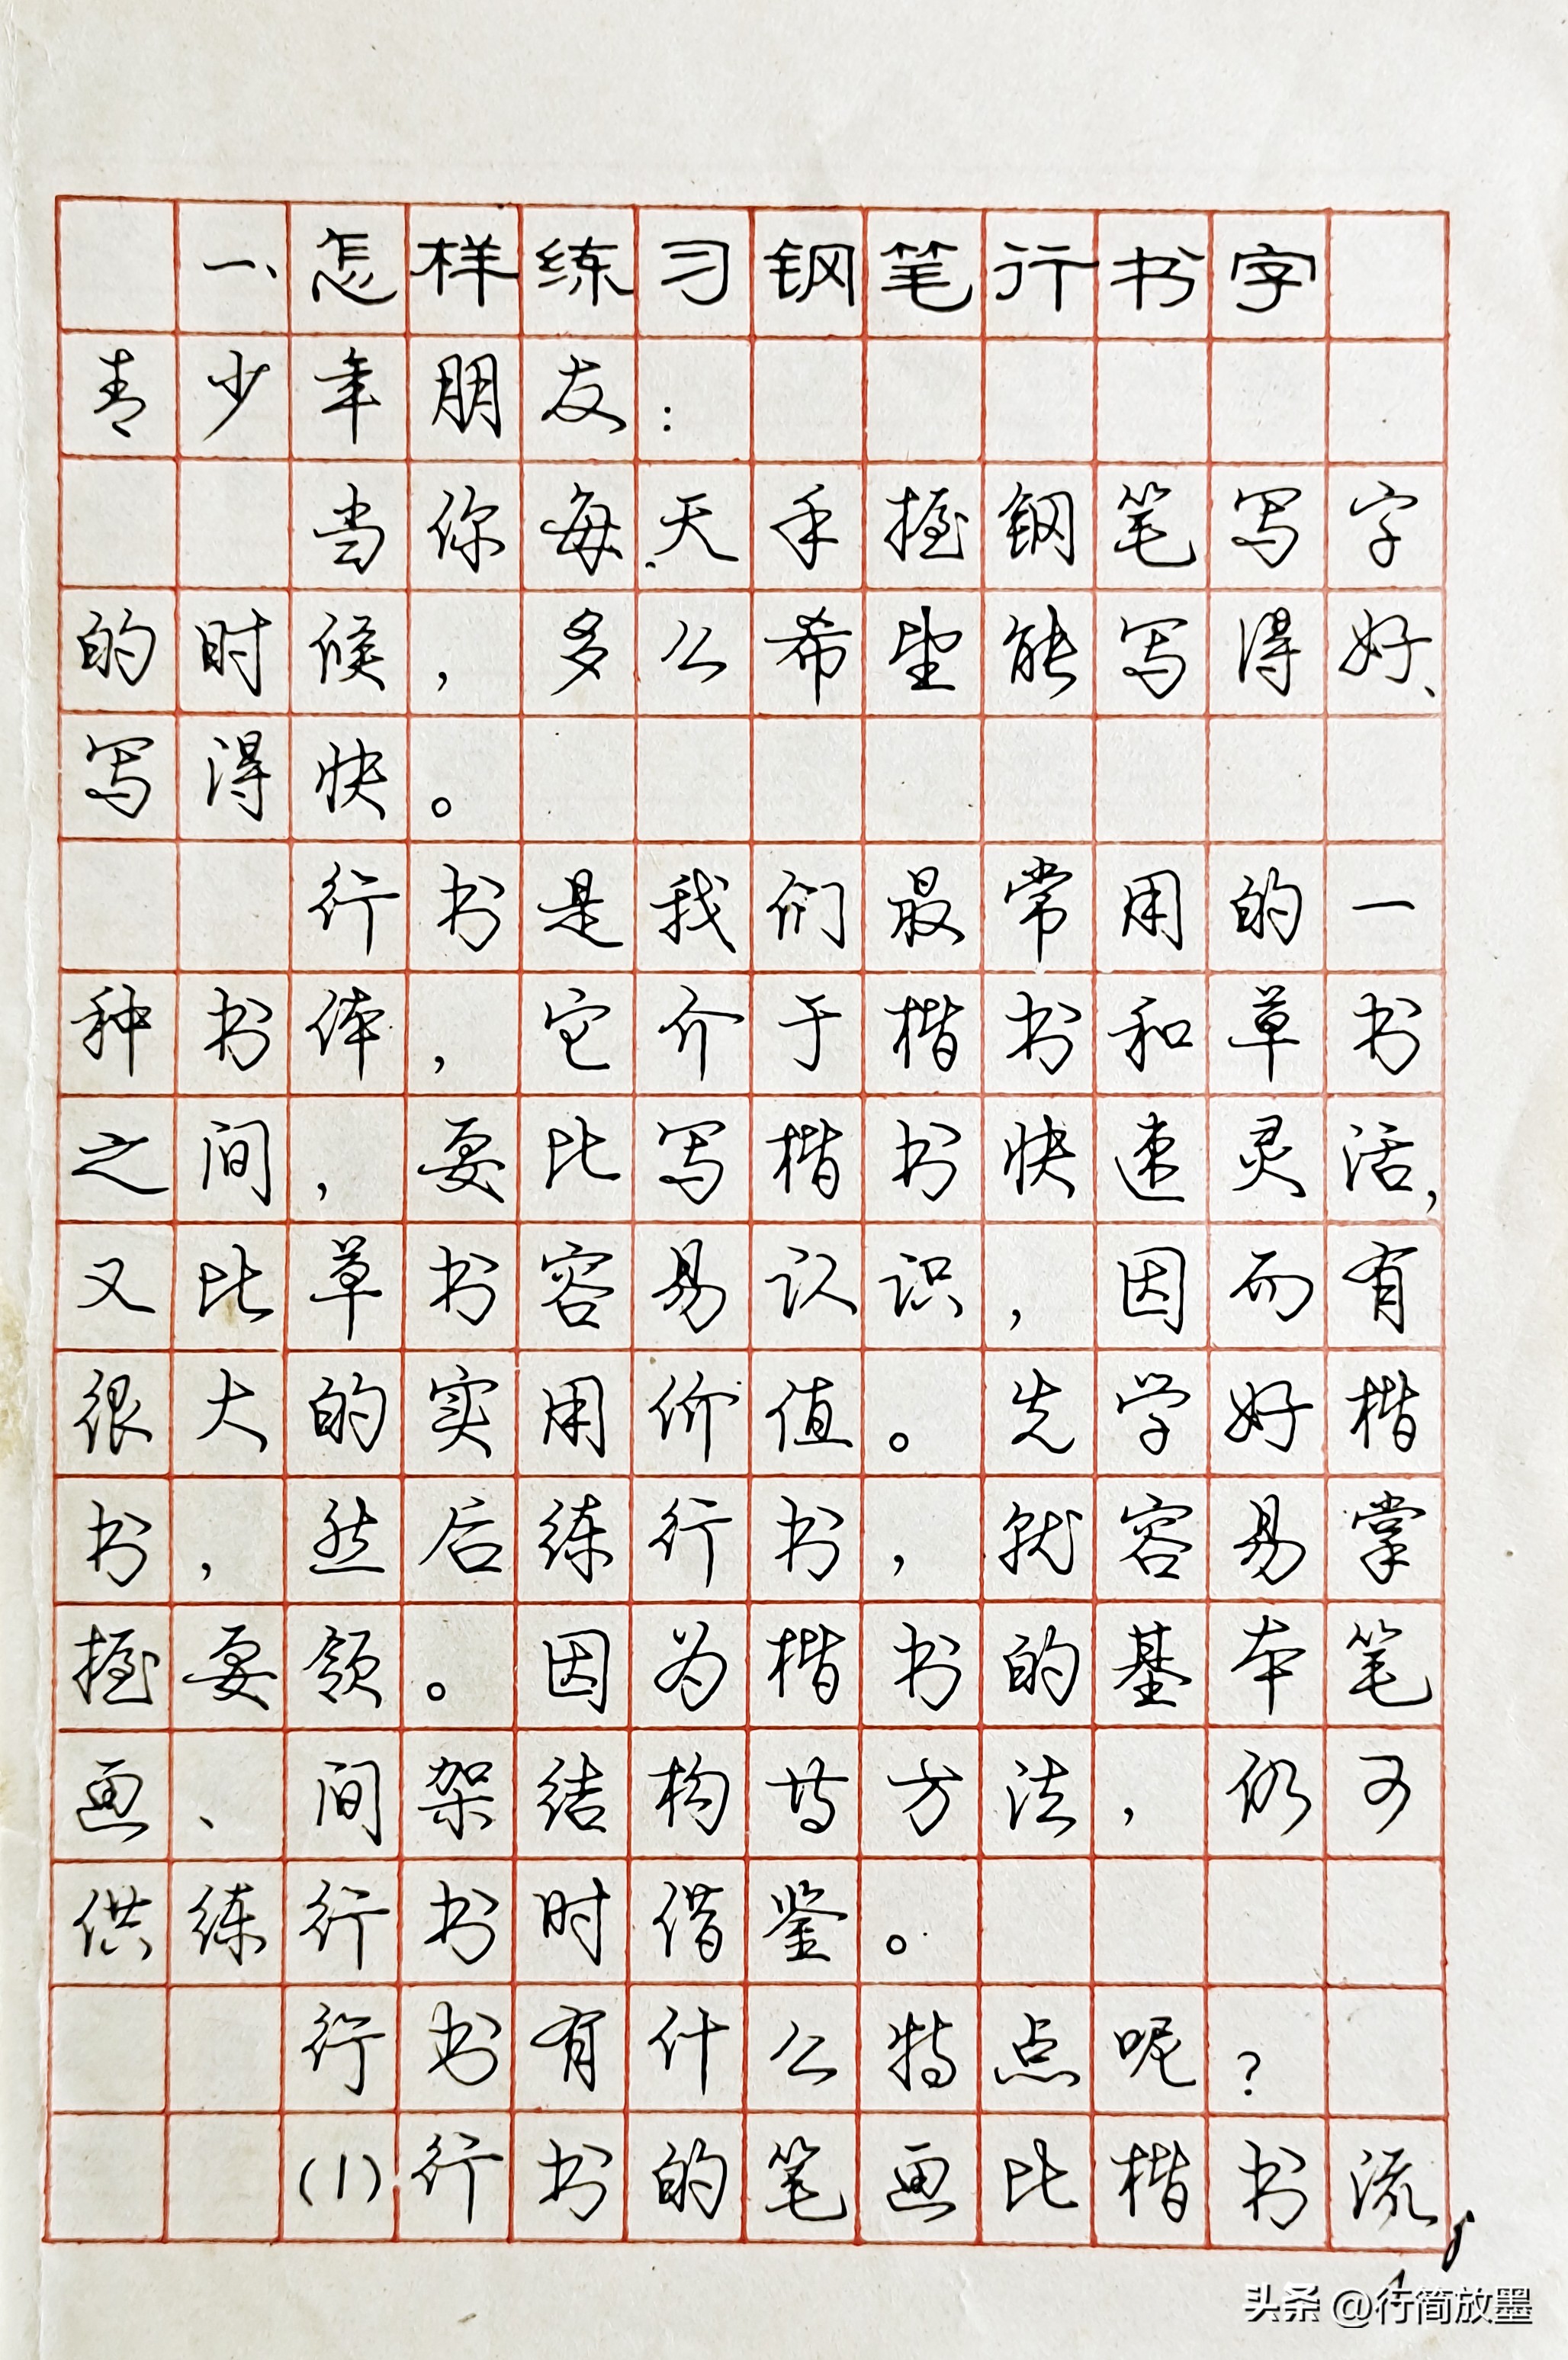 一、怎样练习钢笔行书字
青少年朋友：
当你每天手握钢笔写字
的时候，多么希望能写得好、
写得快。
行书是我们最常用的一
种书体，它介于楷书和草书
之间，要比写楷书快速灵活，
又比草书容易认识，因而有
很大的实用价值。先学好楷
书，然后练行书，就容易掌
握要领。因为楷书的基本笔
画、间架结构等方法，仍可
供练行书时借鉴。
行书有什么特点呢？
(1)行书的笔画比楷书流
头条 @行简放墨